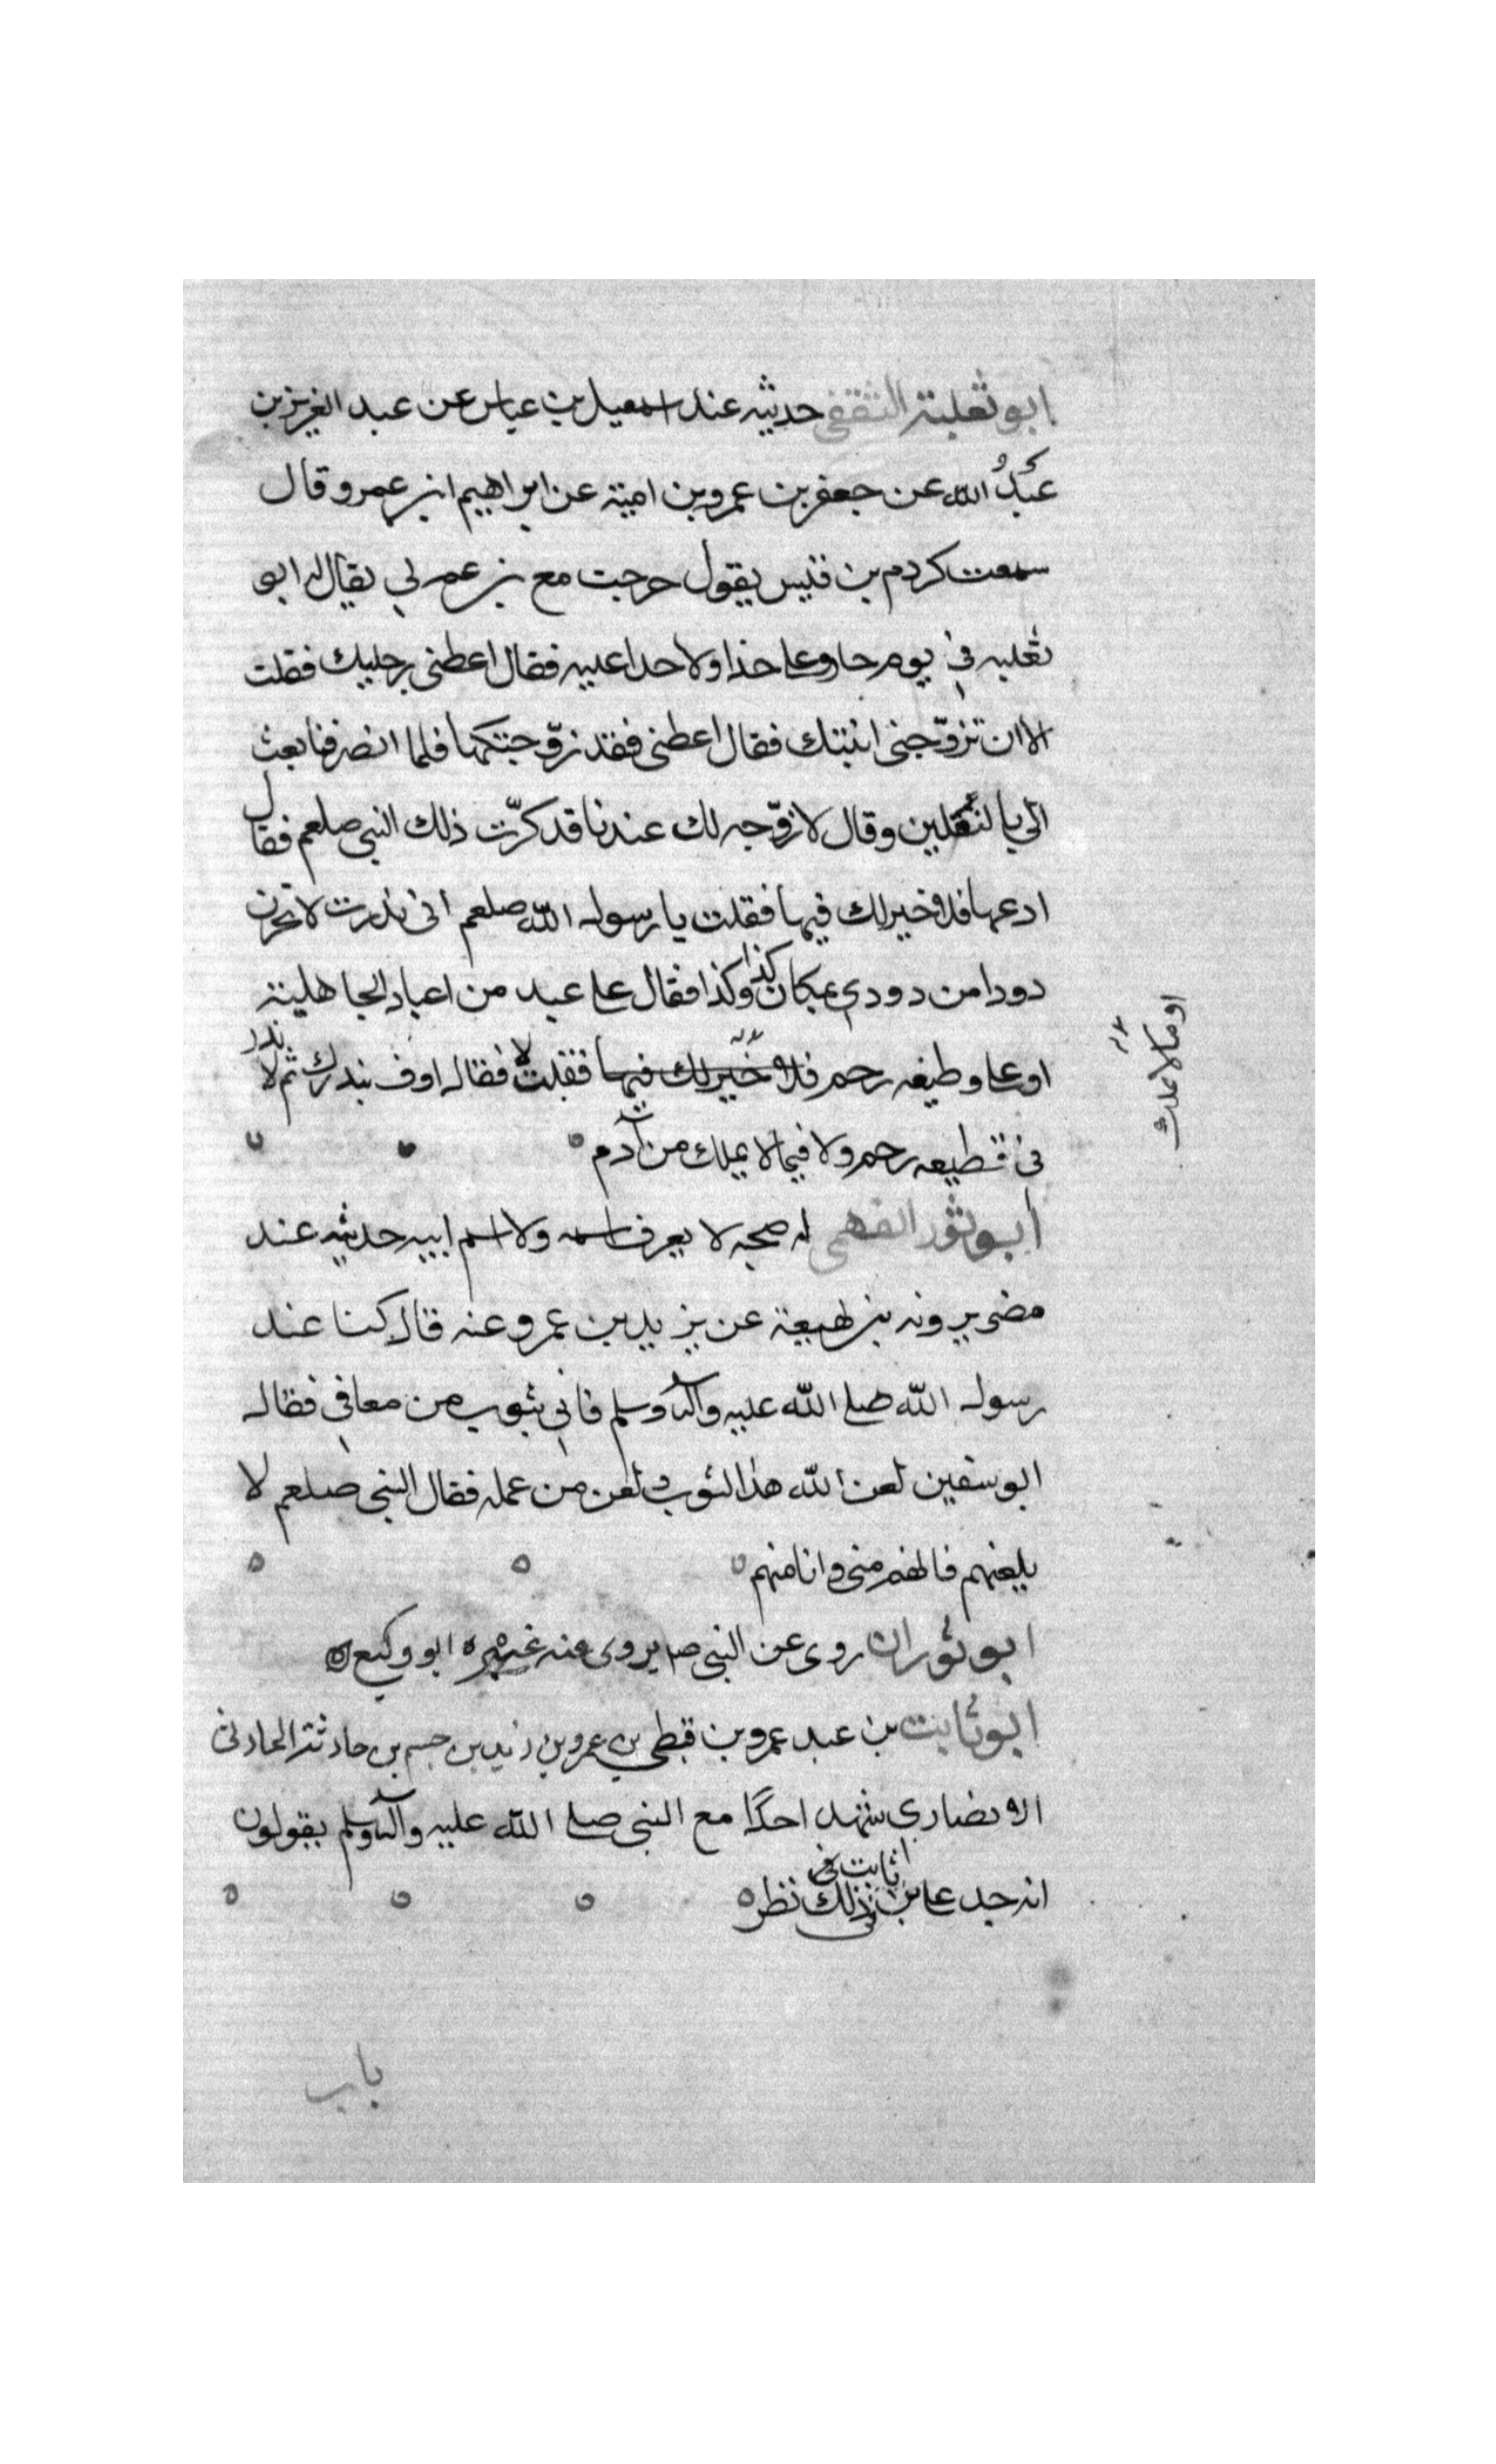 ابو ثعلبة الثقفي حديثه عند اسمعيل بن عياش عن عبد العزيز بن
عبيد الله عن جعفر بن عمرو بن امية عن ابراهيم ابن عمرو قال
سمعت كردم بن قيس يقول خرجت مع بن عم لي يقال له ابو
ثعلبه في يوم حار وعلي حذا ولا حدا عليه فقال اعطني برجليك فقلت
الا ان تزوّجني ابنتك فقال اعطني فقد زوّجتكها فلما انصرفنا بعث
الي بالنعلين وقال لا زوّجه لك عندنا فذكرت ذلك النبي صلعم فقال
ادعها فلا خير لك فيها فقلت يا رسول الله صلعم اني نذرت لانحرن
دودا من دودي بمكان كذا وكذا فقال على عيد من اعياد الجاهلية
او على وطيعه رحم فلا خير لك فيها فقلت لا فقال اوف بندرك ثم لا ندر
او ما لا يملك
في قطيعه رحم ولا فيما لا يملك بن آدم
ابو ثور الفهمي له صحبه لا يعرف اسمه ولا اسم ابيه حديثه عند
مصر يرونه بن لهيعة عن يزيد بن عمرو عنه قال كنا عند
رسول الله صلى الله عليه وآله وسلم فاتي بثوب من معافر فقال
ابو سفين لعن الله هذا الثوب ولعن من عمله فقال النبي صلعم لا
يلعنهم فانهم مني وانا منهم
ابو ثوران روى عن النبي صل يروى عنه ابو وكيع
ابو ثابت بن عبد عمرو بن قيظي بن عمرو بن زيد بن جسم بن حارثة الحارثي
الانصاري شهد احدًا مع النبي صلى الله عليه وآله وسلم يقولون
انه جد عدي بن ثابت في ذلك نظر
باب